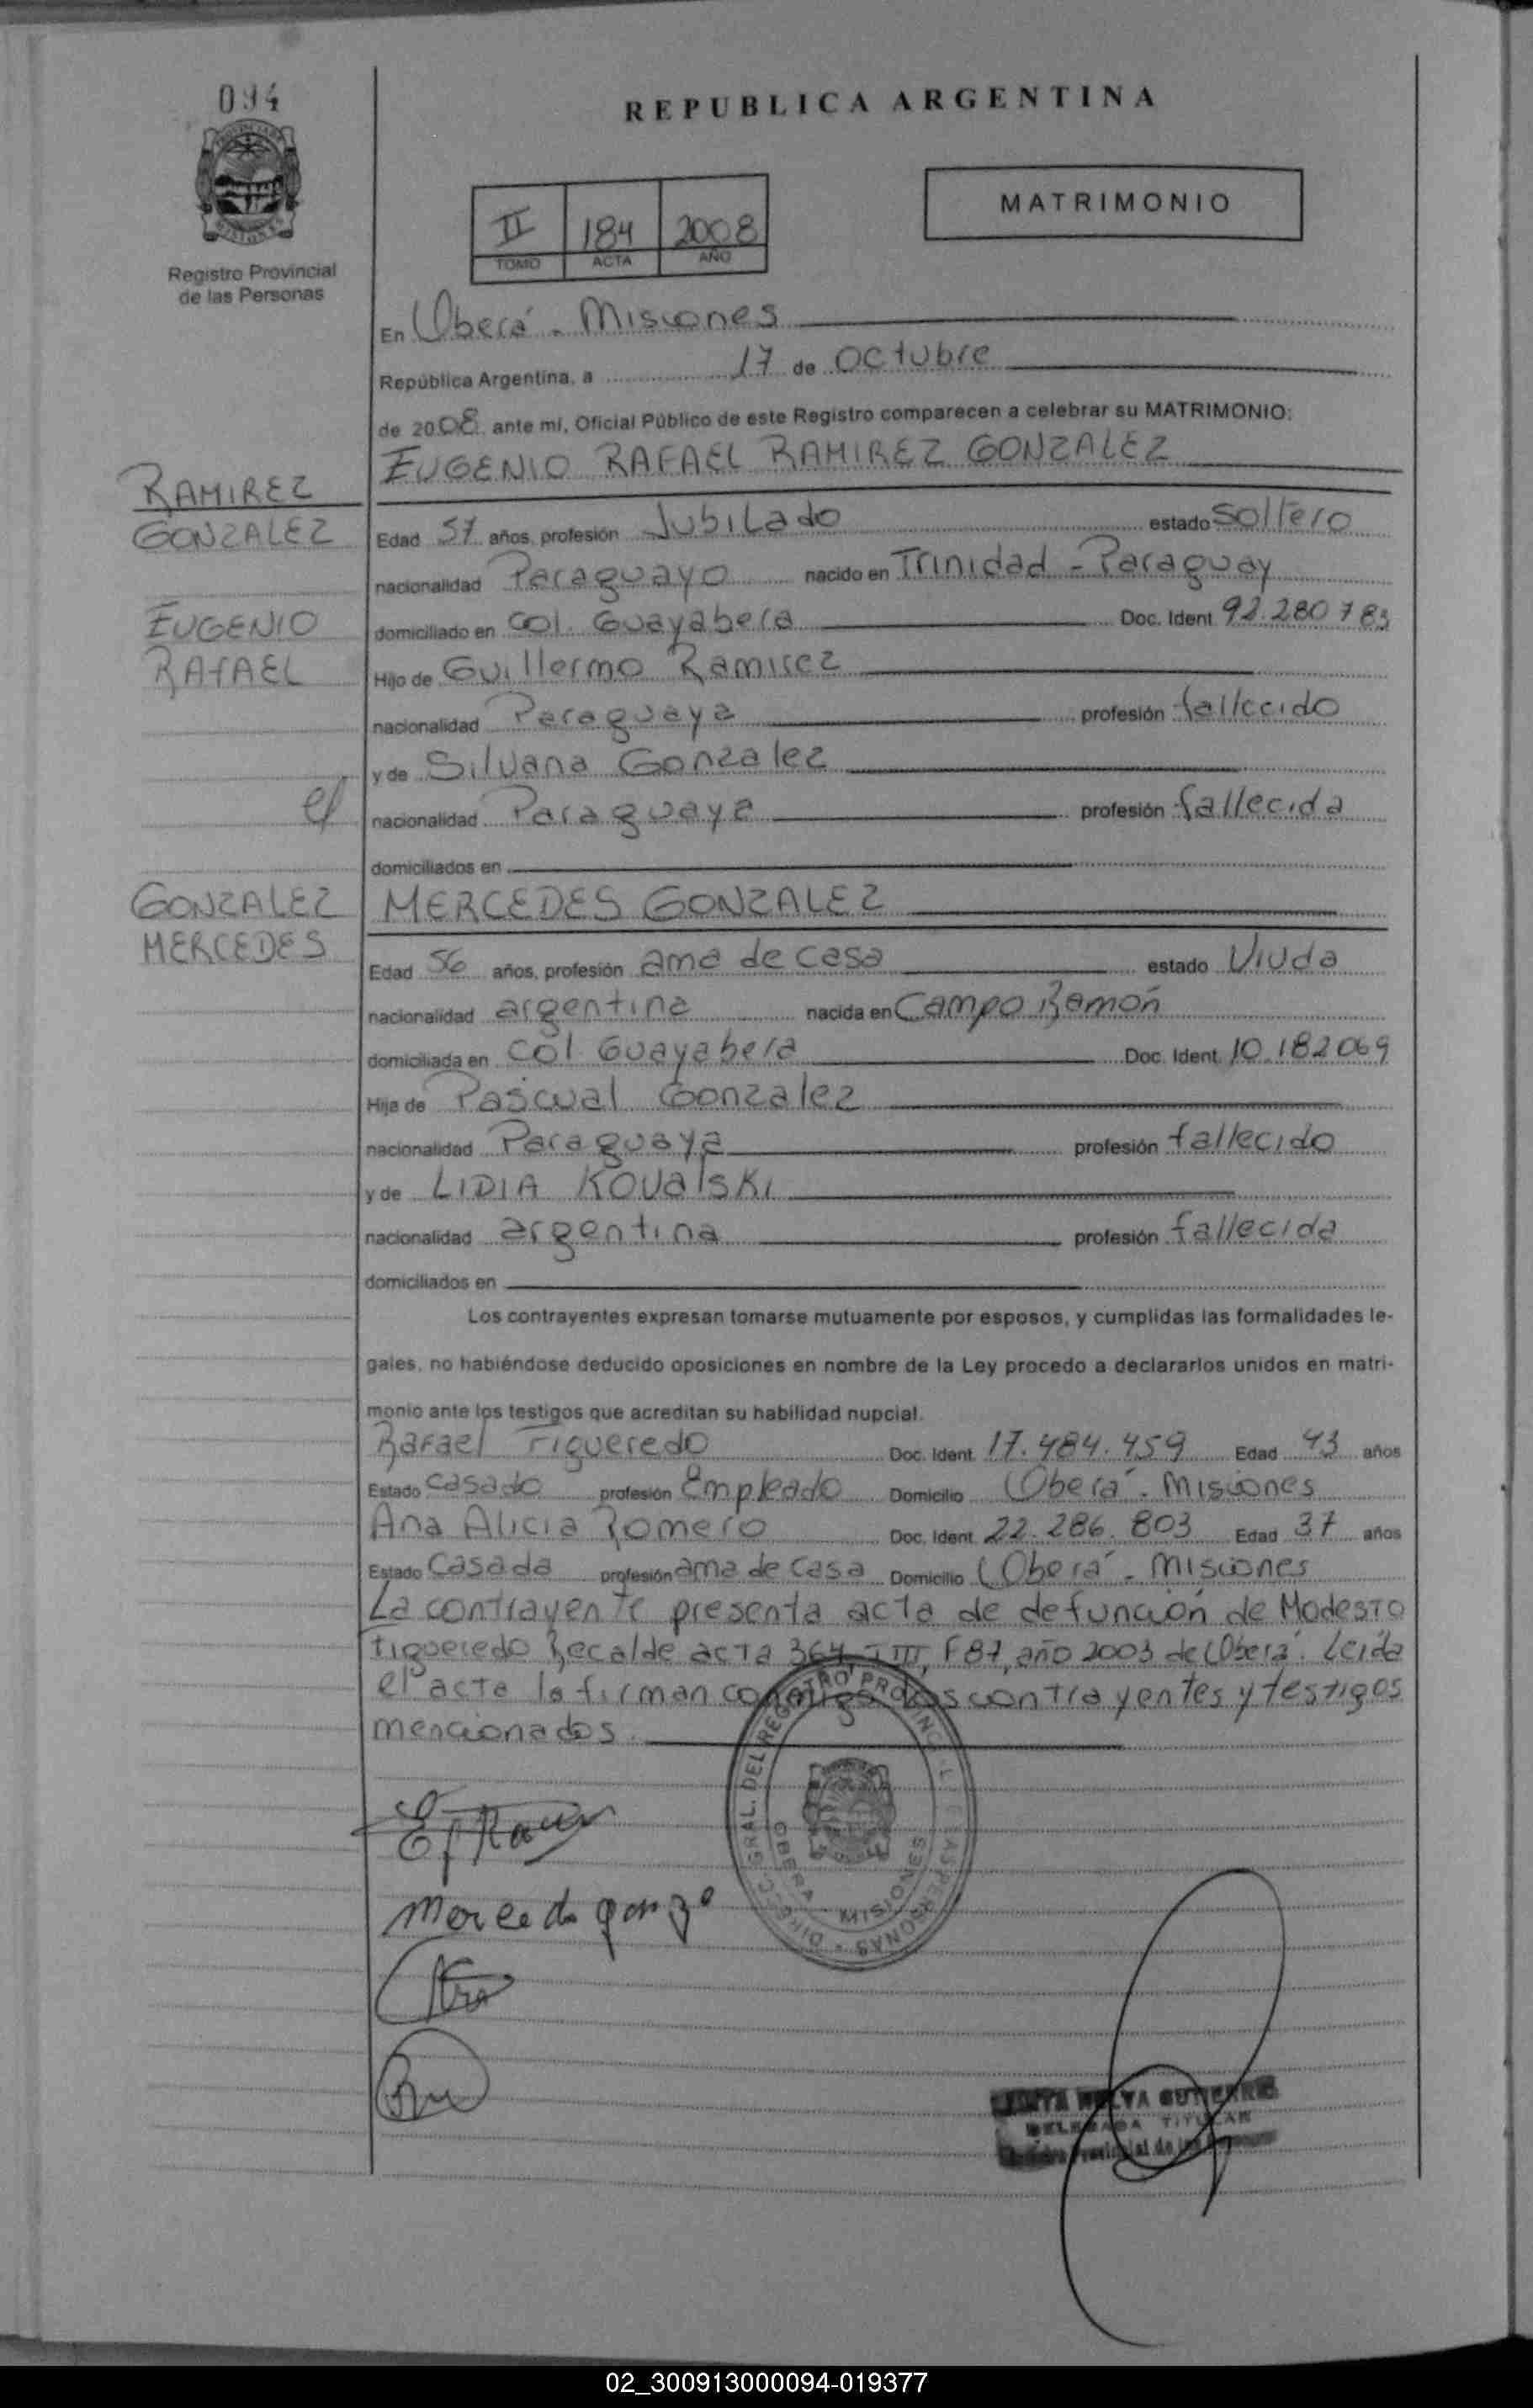 094
REPUBLICA ARGENTINA
MATRIMONIO
II 184 2008
TOMO ACTA AÑO
Registro Provincial
de las Personas
En Oberá - Misiones
República Argentina, a 17 de Octubre
de 2008 ante mi, Oficial Público de este Registro comparecen a celebrar su MATRIMONIO:
EUGENIO RAFAEL RAMIREZ GONZALEZ
RAMIREZ
GONZALEZ
Edad 57 años, profesión Jubilado estado Soltero
nacionalidad Paraguayo nacido en Trinidad - Paraguay
EUGENIO
RAfAEL
domiciliado en Col. Guayabera Doc. Ident. 92.280783
Hijo de Guillermo Ramirez
nacionalidad Paraguaya profesión fallecido
y de Silvana Gonzalez
nacionalidad Paraguaya profesión fallecida
domiciliados en
GONZALEZ
MERCEDES
MERCEDES GONZALEZ
Edad 56 años, profesión ama de casa estado Viuda
nacionalidad argentina nacida en Campo Ramón
domiciliada en Col. Guayabera Doc. Ident. 10.182069
Hija de Pascual Gonzalez
nacionalidad Paraguaya profesión fallecido
y de LIDIA KOValSKI
nacionalidad argentina profesión fallecida
domiciliados en
Los contrayentes expresan tomarse mutuamente por esposos, y cumplidas las formalidades le-
gales, no habiéndose deducido oposiciones en nombre de la Ley procedo a declararlos unidos en matri-
monio ante los testigos que acreditan su habilidad nupcial.
Rafael Figueredo Doc. Ident. 17.484.459 Edad 43 años
Estado Casado profesión Empleado Domicilio Oberá - Misiones
Ana Alicia Romero Doc. Ident. 22.286.803 Edad 37 años
Estado Casada profesión ama de casa Domicilio Oberá - Misiones
La contrayente presenta acta de defunción de Modesto
Figueredo Recalde acta 364, T III, F 87, año 2003 de Oberá. Leida
el acta la firman conmigo los contrayentes y testigos
mencionados.
DIRECC. GRAL. DEL REGISTRO PROVINCIAL DE LAS PERSONAS
OBERA MISIONES
DELEGADA TITULAR
Provincial de las
02_300913000094-019377